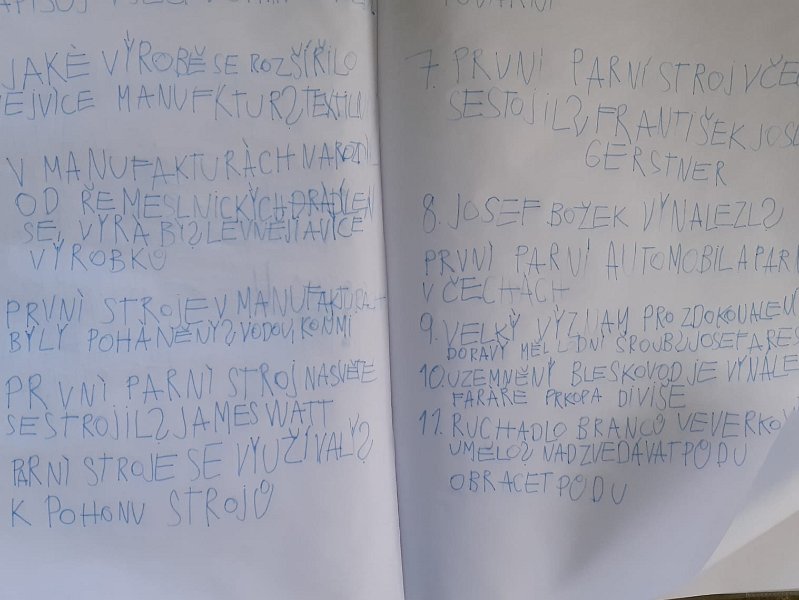 JAKÉ VÝROBĚ SE ROZŠÍŘILO
EJVÍCE MANUFKTUR? TEXTILN
V MANUFAKTURÁCH NAROZDÍ
OD ŘEMESLNICKÝCH DRADLEN
SE, VYRÁBÍ? LEVNĚJI A VÍCE
VÝROBKŮ
PRVNÍ STROJE V MANUFAKTURÁ
BYLY POHÁNĚNY? VODOU, KOŇMI
PRVNÍ PARNÍ STROJ NA SVĚTE
SESTROJIL? JAMES WATT
PARNÍ STROJE SE VYUŽÍVALY?
K POHONU STROJŮ
7. PRVNÍ PARNÍ STROJ V ČE
SESTOJIL? FRANTIŠEK JOS
GERSTNER
8. JOSEF BOŽEK VYNALEZL?
PRVNÍ PARNÍ AUTOMOBIL A PAR
V ČECHÁCH
9. VELKÝ VÝZNAM PRO ZDOKOVALEN
DORAVY MĚL LDNÍ ŠROUB? JOSEFA RES
10. UZEMNĚNÝ BLESKOVOD JE VYNÁLE
FARÁŘE PRKOPA DIVIŠE
11. RUCHADLO BRANCŮ VEVERKOV
UMĚLO? NADZVEDÁVAT PŮDU
OBRACET PŮDU